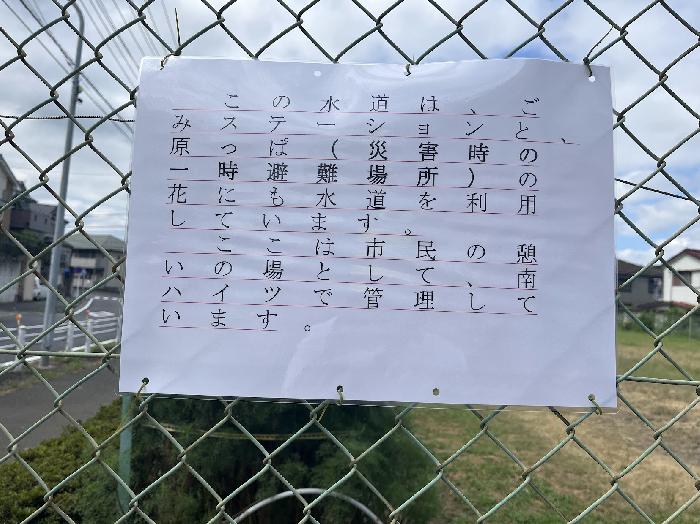 この水道は、ご
みステーションと、
原っぱ(災害時の
一時避難場所)の
花にも水道を利用
しています。
ここは市民の憩
いの場として、南
ハイツで管理して
います。